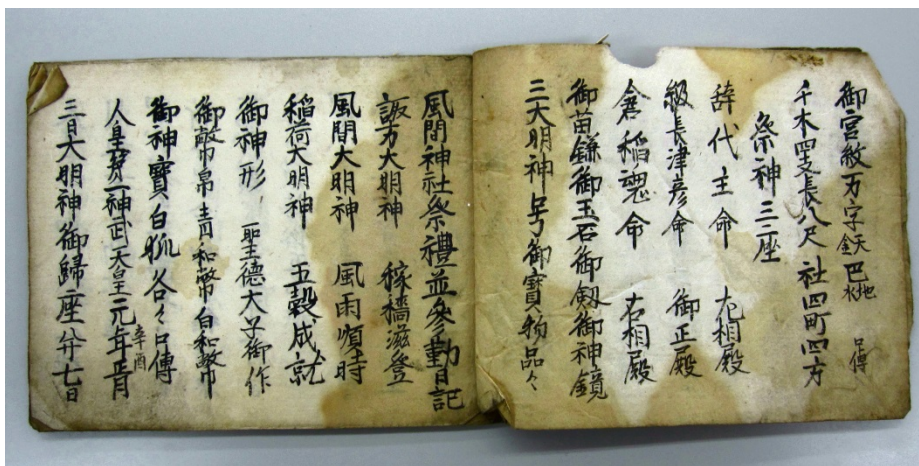 御宮紋万字 金天 巴 水地 口傳
千木四支長八尺 社四町四方
祭神三座
辞代主命 左相殿
級長津彦命 御正殿
倉稲魂命 右相殿
御苗鎌御玉石御剱御神鏡
三大明神号御寳物品々
風間神社祭禮並参勤日記
諏方大明神 稼穡滋登
風間大明神 風雨順時
稲荷大明神 五穀成就
御神形 聖徳太子御作
御幣帛青和幣白和幣
御神寳白 各々口傳
人皇第一神武天皇元年辛酉正月
三日大明神御歸座分七日